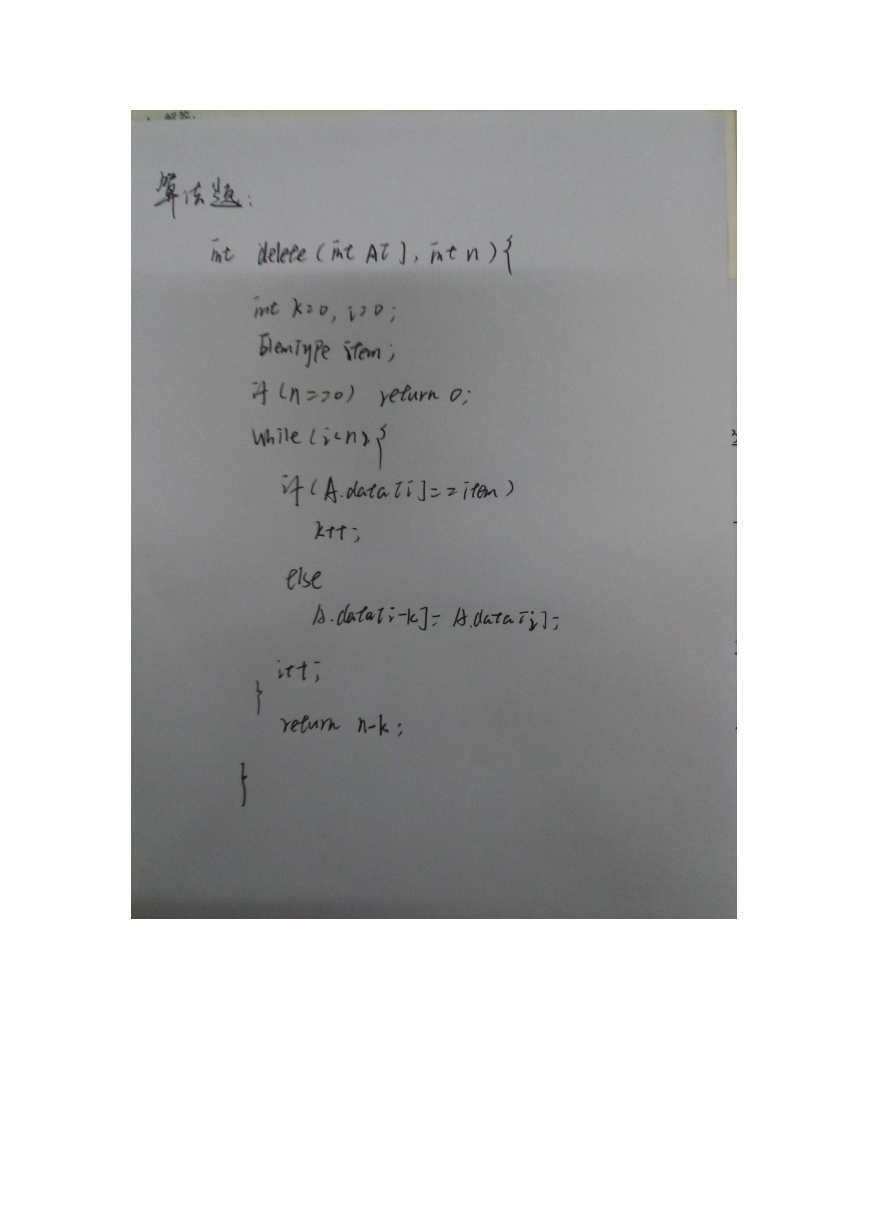 算法题:
int delete(int A[],int n){
int k=0,i=0;
ElemType item;
if(n==0) return 0;
while(i<n){
if(A.data[i]==item)
k++;
else
A.data[i-k]=A.data[i];
i++;
}
return n-k;
}